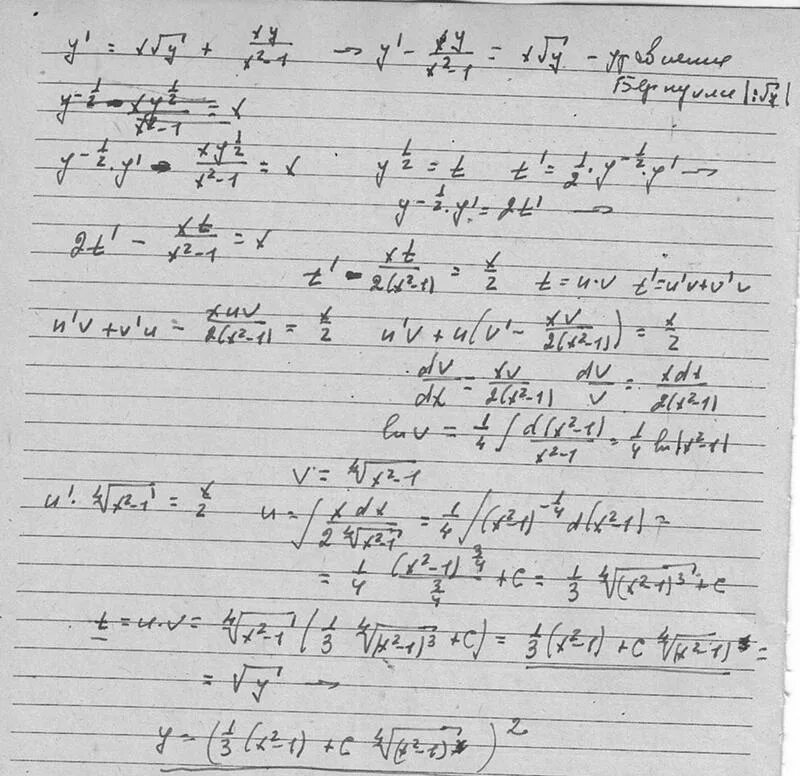 y' = x√y + xy/(x²-1) → y' - xy/(x²-1) = x√y - уравнение
Бернулли |:√y|
y^(-1/2) - xy^(1/2)/(x²-1) = x
y^(-1/2)·y' - xy^(1/2)/(x²-1) = x   y^(1/2) = t   t' = 1/2·y^(-1/2)·y' →
y^(-1/2)·y' = 2t' →
2t' - xt/(x²-1) = x
t' - xt/(2(x²-1)) = x/2   t = u·v   t' = u'v + v'u
u'v + v'u - xuv/(2(x²-1)) = x/2   u'v + u(v' - xv/(2(x²-1))) = x/2
dv/dx = xv/(2(x²-1))   dv/v = xdx/(2(x²-1))
ln v = 1/4 ∫ d(x²-1)/(x²-1) = 1/4 ln|x²-1|
v = ⁴√(x²-1)
u'·⁴√(x²-1) = x/2   u = ∫ xdx/(2 ⁴√(x²-1)) = 1/4 ∫ (x²-1)^(-1/4) d(x²-1) =
= 1/4 (x²-1)^(3/4)/(3/4) + C = 1/3 ⁴√((x²-1)³) + C
t = u·v = ⁴√(x²-1) (1/3 ⁴√((x²-1)³) + C) = 1/3(x²-1) + C ⁴√(x²-1) =
= √y →
y = (1/3 (x²-1) + C ⁴√(x²-1))²